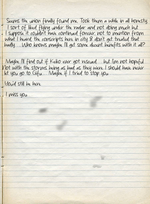 Swears the union finally found me. Took them a while in all honesty
I sort of liked flying under the radar and not doing much but
I suppose it couldn't have continued forever, not to mention from
what I heard the conscripts here in city 8 don't get treated that
badly... Who knows maybe I'll get some decent benefits with it all?
Maybe I'll find out if Kubo ever got rescued... but I'm not hopeful
Not with the stories being as bad as they were. I should have never
let you go to Cofu... Maybe if I tried to stop you
He'd still be here.
I miss you.